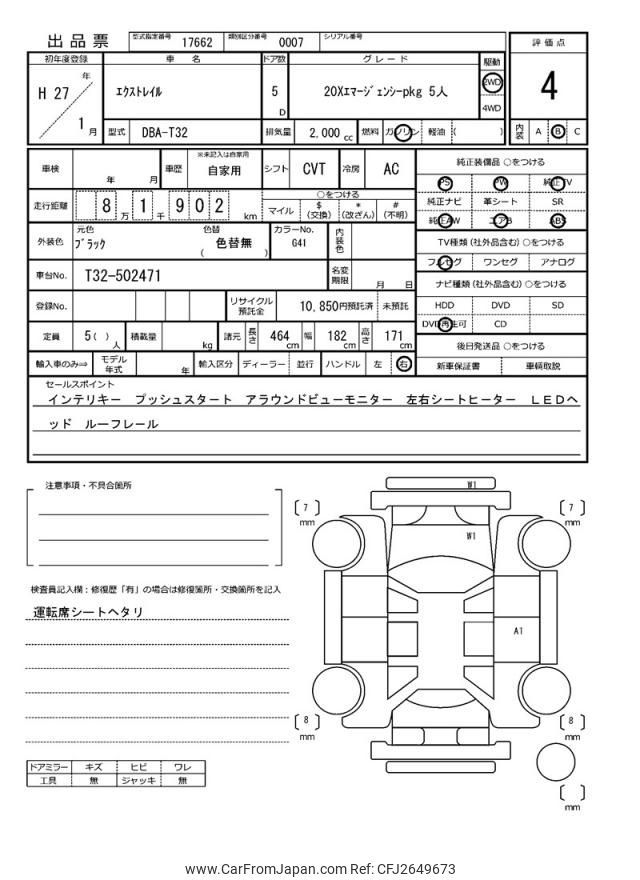 出品票 型式指定番号 17662 類別区分番号 0007 シリアル番号
初年度登録 車名 ドア数 グレード 駆動 評価点
H 27 年 1 月 エクストレイル 5 D 20Xエマージェンシーpkg 5人 2WD 4WD 4
型式 DBA-T32 排気量 2,000 cc 燃料 ガソリン 軽油 ( ) 内装 A B C
車検 年 月 車歴 ※未記入は自家用 自家用 シフト CVT 冷房 AC
走行距離 8 万 1 千 9 0 2 km ○をつける マイル $ (交換) * (改ざん) # (不明)
外装色 元色 ブラック 色替 ( 色替無 ) カラーNo. G41 内装色
車台No. T32-502471 名変期限 月 日
登録No. リサイクル預託金 10,850円預託済 未預託
定員 5( ) 人 積載量 kg 諸元 長さ 464 cm 幅 182 cm 高さ 171 cm
輸入車のみ⇒ モデル年式 年 輸入区分 ディーラー 並行 ハンドル 左 右
純正装備品 ○をつける
PS PW 純正TV
純正ナビ 革シート SR
純正AW エアB ABS
TV種類 (社外品含む) ○をつける
フルセグ ワンセグ アナログ
ナビ種類 (社外品含む) ○をつける
HDD DVD SD
DVD再生可 CD
後日発送品 ○をつける
新車保証書 車輌取説
セールスポイント
インテリキー プッシュスタート アラウンドビューモニター 左右シートヒーター LEDヘ
ッド ルーフレール
注意事項・不具合箇所
検査員記入欄：修復歴「有」の場合は修復箇所・交換箇所を記入
運転席シートヘタリ
ドアミラー キズ ヒビ ワレ
工具 無 ジャッキ 無
W1
7 mm
7 mm
W1
A1
8 mm
8 mm
mm
www.CarFromJapan.com Ref: CFJ2649673